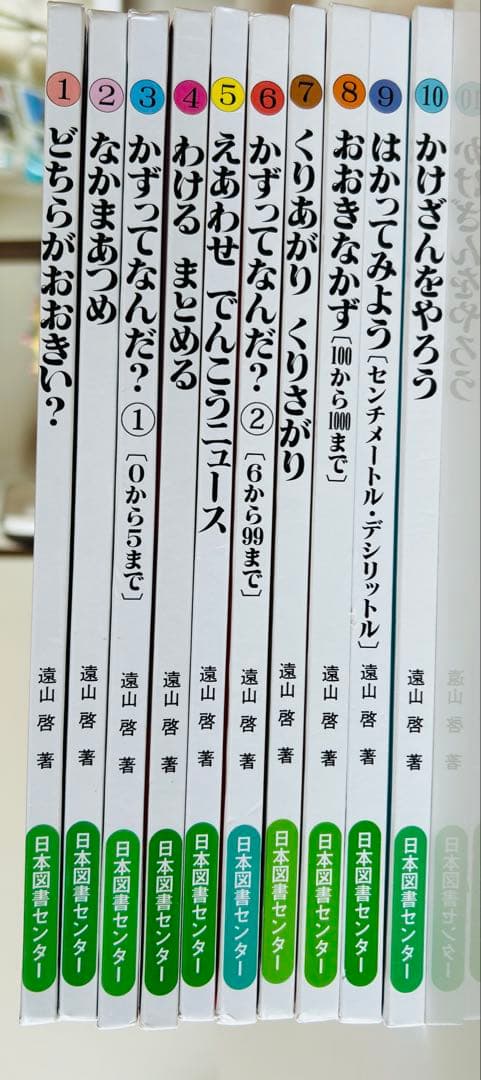 1 どちらがおおきい？ 遠山 啓 著 日本図書センター
2 なかまあつめ 遠山 啓 著 日本図書センター
3 かずってなんだ？ ① 〔0から5まで〕 遠山 啓 著 日本図書センター
4 わける まとめる 遠山 啓 著 日本図書センター
5 えあわせ でんこうニュース 遠山 啓 著 日本図書センター
6 かずってなんだ？ ② 〔6から99まで〕 遠山 啓 著 日本図書センター
7 くりあがり くりさがり 遠山 啓 著 日本図書センター
8 おおきなかず〔100から1000まで〕 遠山 啓 著 日本図書センター
9 はかってみよう〔センチメートル・デシリットル〕 遠山 啓 著 日本図書センター
10 かけざんをやろう 遠山 啓 著 日本図書センター